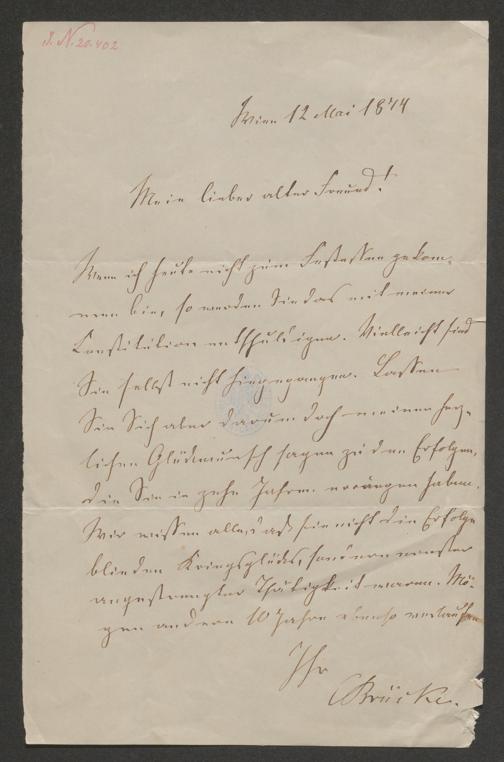 J.N. 20.402
Wien 12 Mai 1874
Mein lieber alter Freund!
Wenn ich heute nicht zum Festessen gekom-
men bin, so werden Sie das mit meiner
Constitution entschuldigen. Vielleicht sind
Sie selbst nicht hingegangen. Lassen
Sie Sich aber darum doch meinen herz-
lichen Glückwunsch sagen zu den Erfolgen,
die Sie in zehn Jahren errungen haben.
Wir wissen alle, daß sie nicht die Erfolge
blinden Kriegsglücks, sondern ernster
angestrengter Thätigkeit waren. Mö-
gen andere 10 Jahre ebenso verlaufen
Ihr
EBrücke.